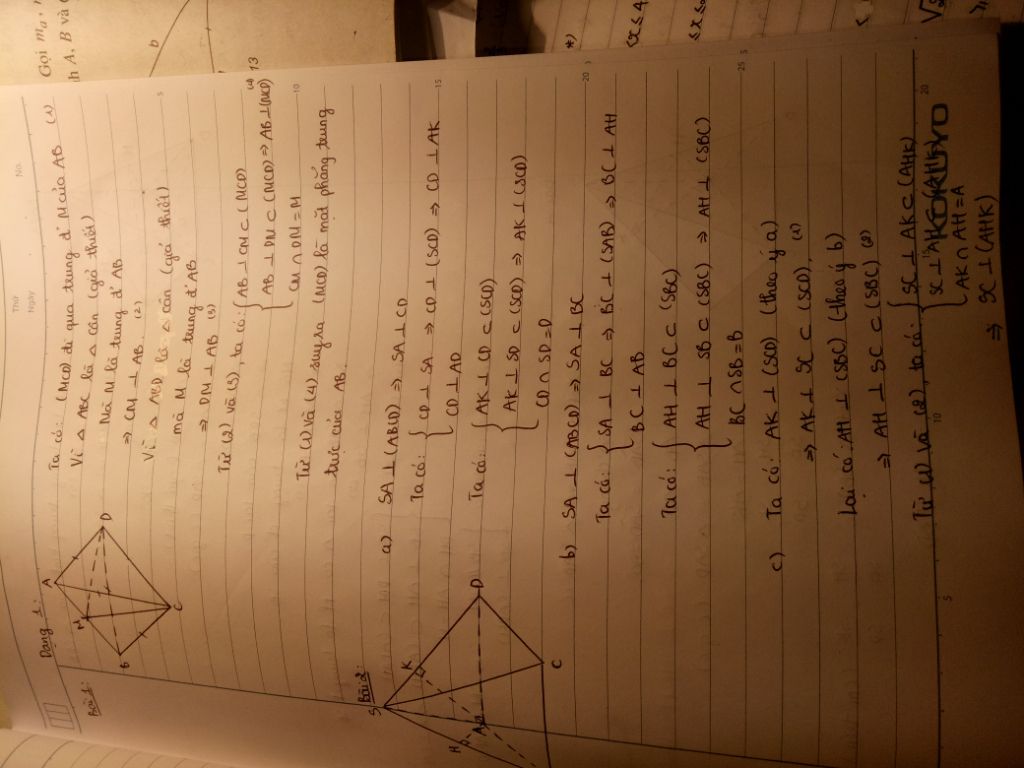 Thứ
Ngày
No.
Dạng 1:
Bài 1:
A
B
C
D
M
Ta có: (MCD) đi qua trung đ' M của AB (1)
Vì △ ABC là △ cân (giả thiết)
Mà M là trung đ' AB
⇒ CM ⊥ AB (2)
Vì △ ABD là △ cân (giả thiết)
mà M là trung đ' AB
⇒ DM ⊥ AB (3)
Từ (2) và (3), ta có: { AB ⊥ CM ⊂ (MCD)
AB ⊥ DM ⊂ (MCD) ⇒ AB ⊥ (MCD) (4)
CM ∩ DM = M
Từ (1) và (4) suy ra (MCD) là mặt phẳng trung
trực của AB.
Bài 2:
S
K
H
A
D
C
a) SA ⊥ (ABCD) ⇒ SA ⊥ CD
Ta có: { CD ⊥ SA ⇒ CD ⊥ (SCD) ⇒ CD ⊥ AK
CD ⊥ AD
Ta có: { AK ⊥ CD ⊂ (SCD)
AK ⊥ SD ⊂ (SCD) ⇒ AK ⊥ (SCD)
CD ∩ SD = D
b) SA ⊥ (ABCD) ⇒ SA ⊥ BC
Ta có: { SA ⊥ BC ⇒ BC ⊥ (SAB) ⇒ BC ⊥ AH
BC ⊥ AB
Ta có: { AH ⊥ BC ⊂ (SBC)
AH ⊥ SB ⊂ (SBC) ⇒ AH ⊥ (SBC)
BC ∩ SB = B
c) Ta có: AK ⊥ (SCD) (theo ý a)
⇒ AK ⊥ SC ⊂ (SCD) (1)
Lại có: AH ⊥ (SBC) (theo ý b)
⇒ AH ⊥ SC ⊂ (SBC) (2)
Từ (1) và (2), ta có: { SC ⊥ AK ⊂ (AHK)
SC ⊥ AH
AK ∩ AH = A
⇒ SC ⊥ (AHK)
KOKUYO
5
10
15
20
25
5
10
20
Gọi
A, B và
b
13